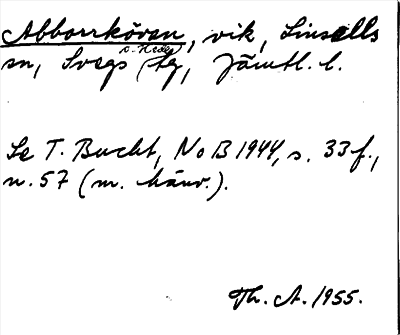 Abborrkövan, vik, Linsells
sn, Svegs (o. Hede) tg, Jämtl. l.
Se T. Bucht, NoB 1944, s. 33 f.,
n. 57 (m. hänv.).
Th. A. 1955.